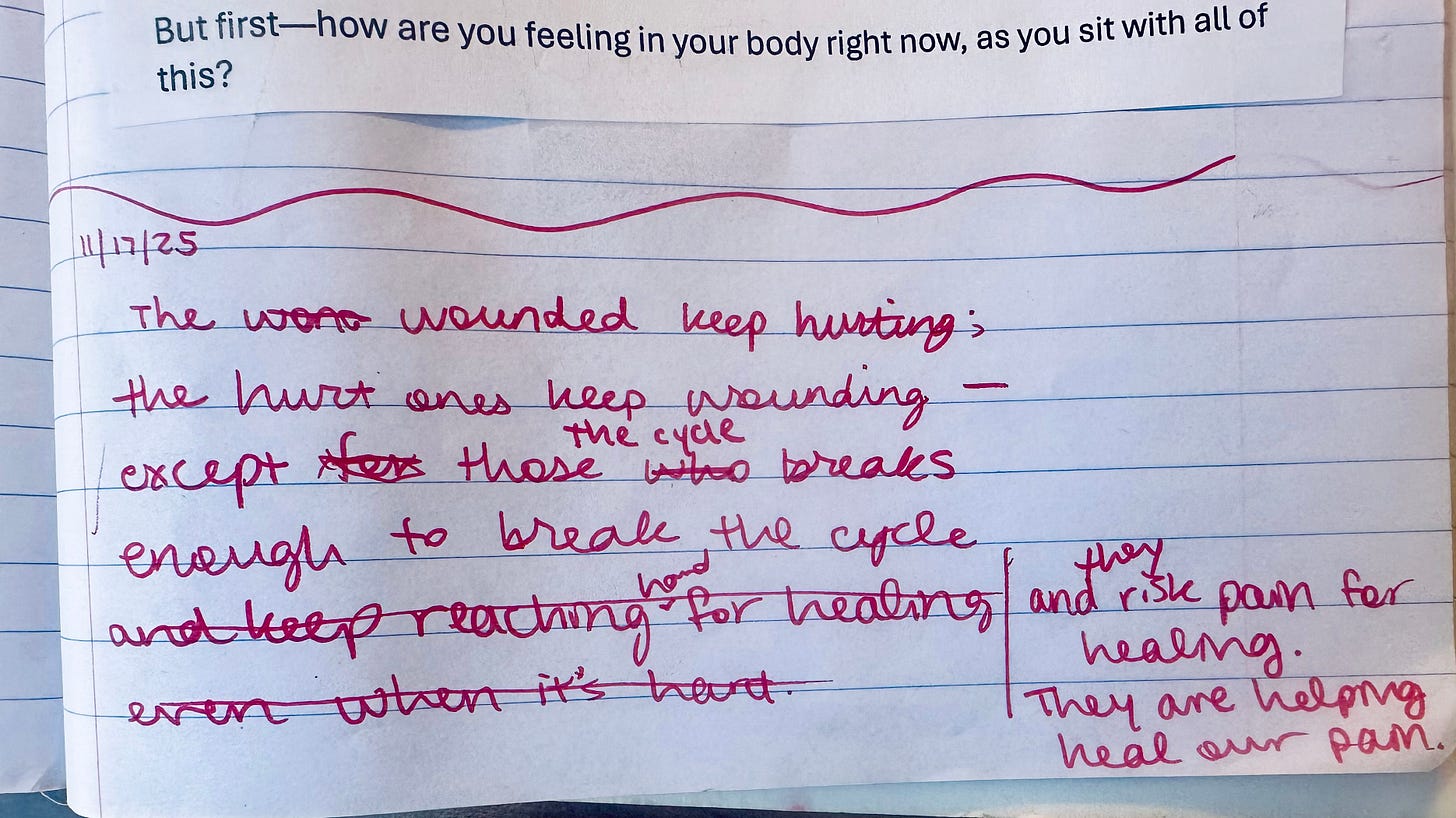 But first—how are you feeling in your body right now, as you sit with all of
this?
11/17/25
The wono wounded keep hurting;
the hurt ones keep wounding —
the cycle
except for those who breaks
enough to break the cycle
hard
and keep reaching for healing
even when it's hard.
they
and risk pain for
healing.
They are helping
heal our pain.